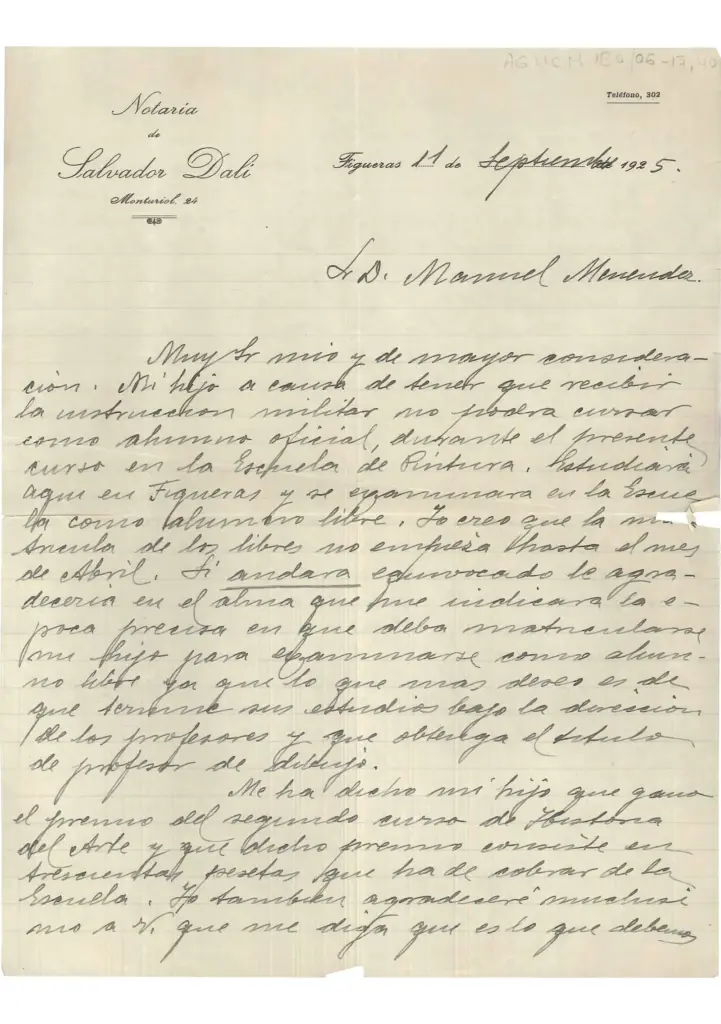 AGUCM 1ED/06-17,40
Teléfono, 302
Notaría
de
Salvador Dalí
Monturiol, 24
Figueras 11 de Septiembre de 1925.
Sr D. Manuel Menendez.
Muy Sr mio y de mayor considera-
ción. Mi hijo a causa de tener que recibir
la instruccion militar no podra cursar
como alumno oficial, durante el presente
curso en la Escuela de Pintura. Estudiará
aqui en Figueras y se examinara en la Escue
la como alumno libre. Yo creo que la ma
tricula de los libres no empieza hasta el mes
de Abril. Si andara equivocado le agra-
deceria en el alma que me indicara la e-
poca precisa en que deba matricularse
mi hijo para examinarse como alum-
no libre ya que lo que mas deseo es de
que termine sus estudios bajo la direccion
de los profesores y que obtenga el titulo
de profesor de dibujo.
Me ha dicho mi hijo que gano
el premio del segundo curso de Historia
del Arte y que dicho premio consiste en
trescientas pesetas que ha de cobrar de la
Escuela. Yo tambien agradeceré muchisi
mo a V. que me diga que es lo que debemos